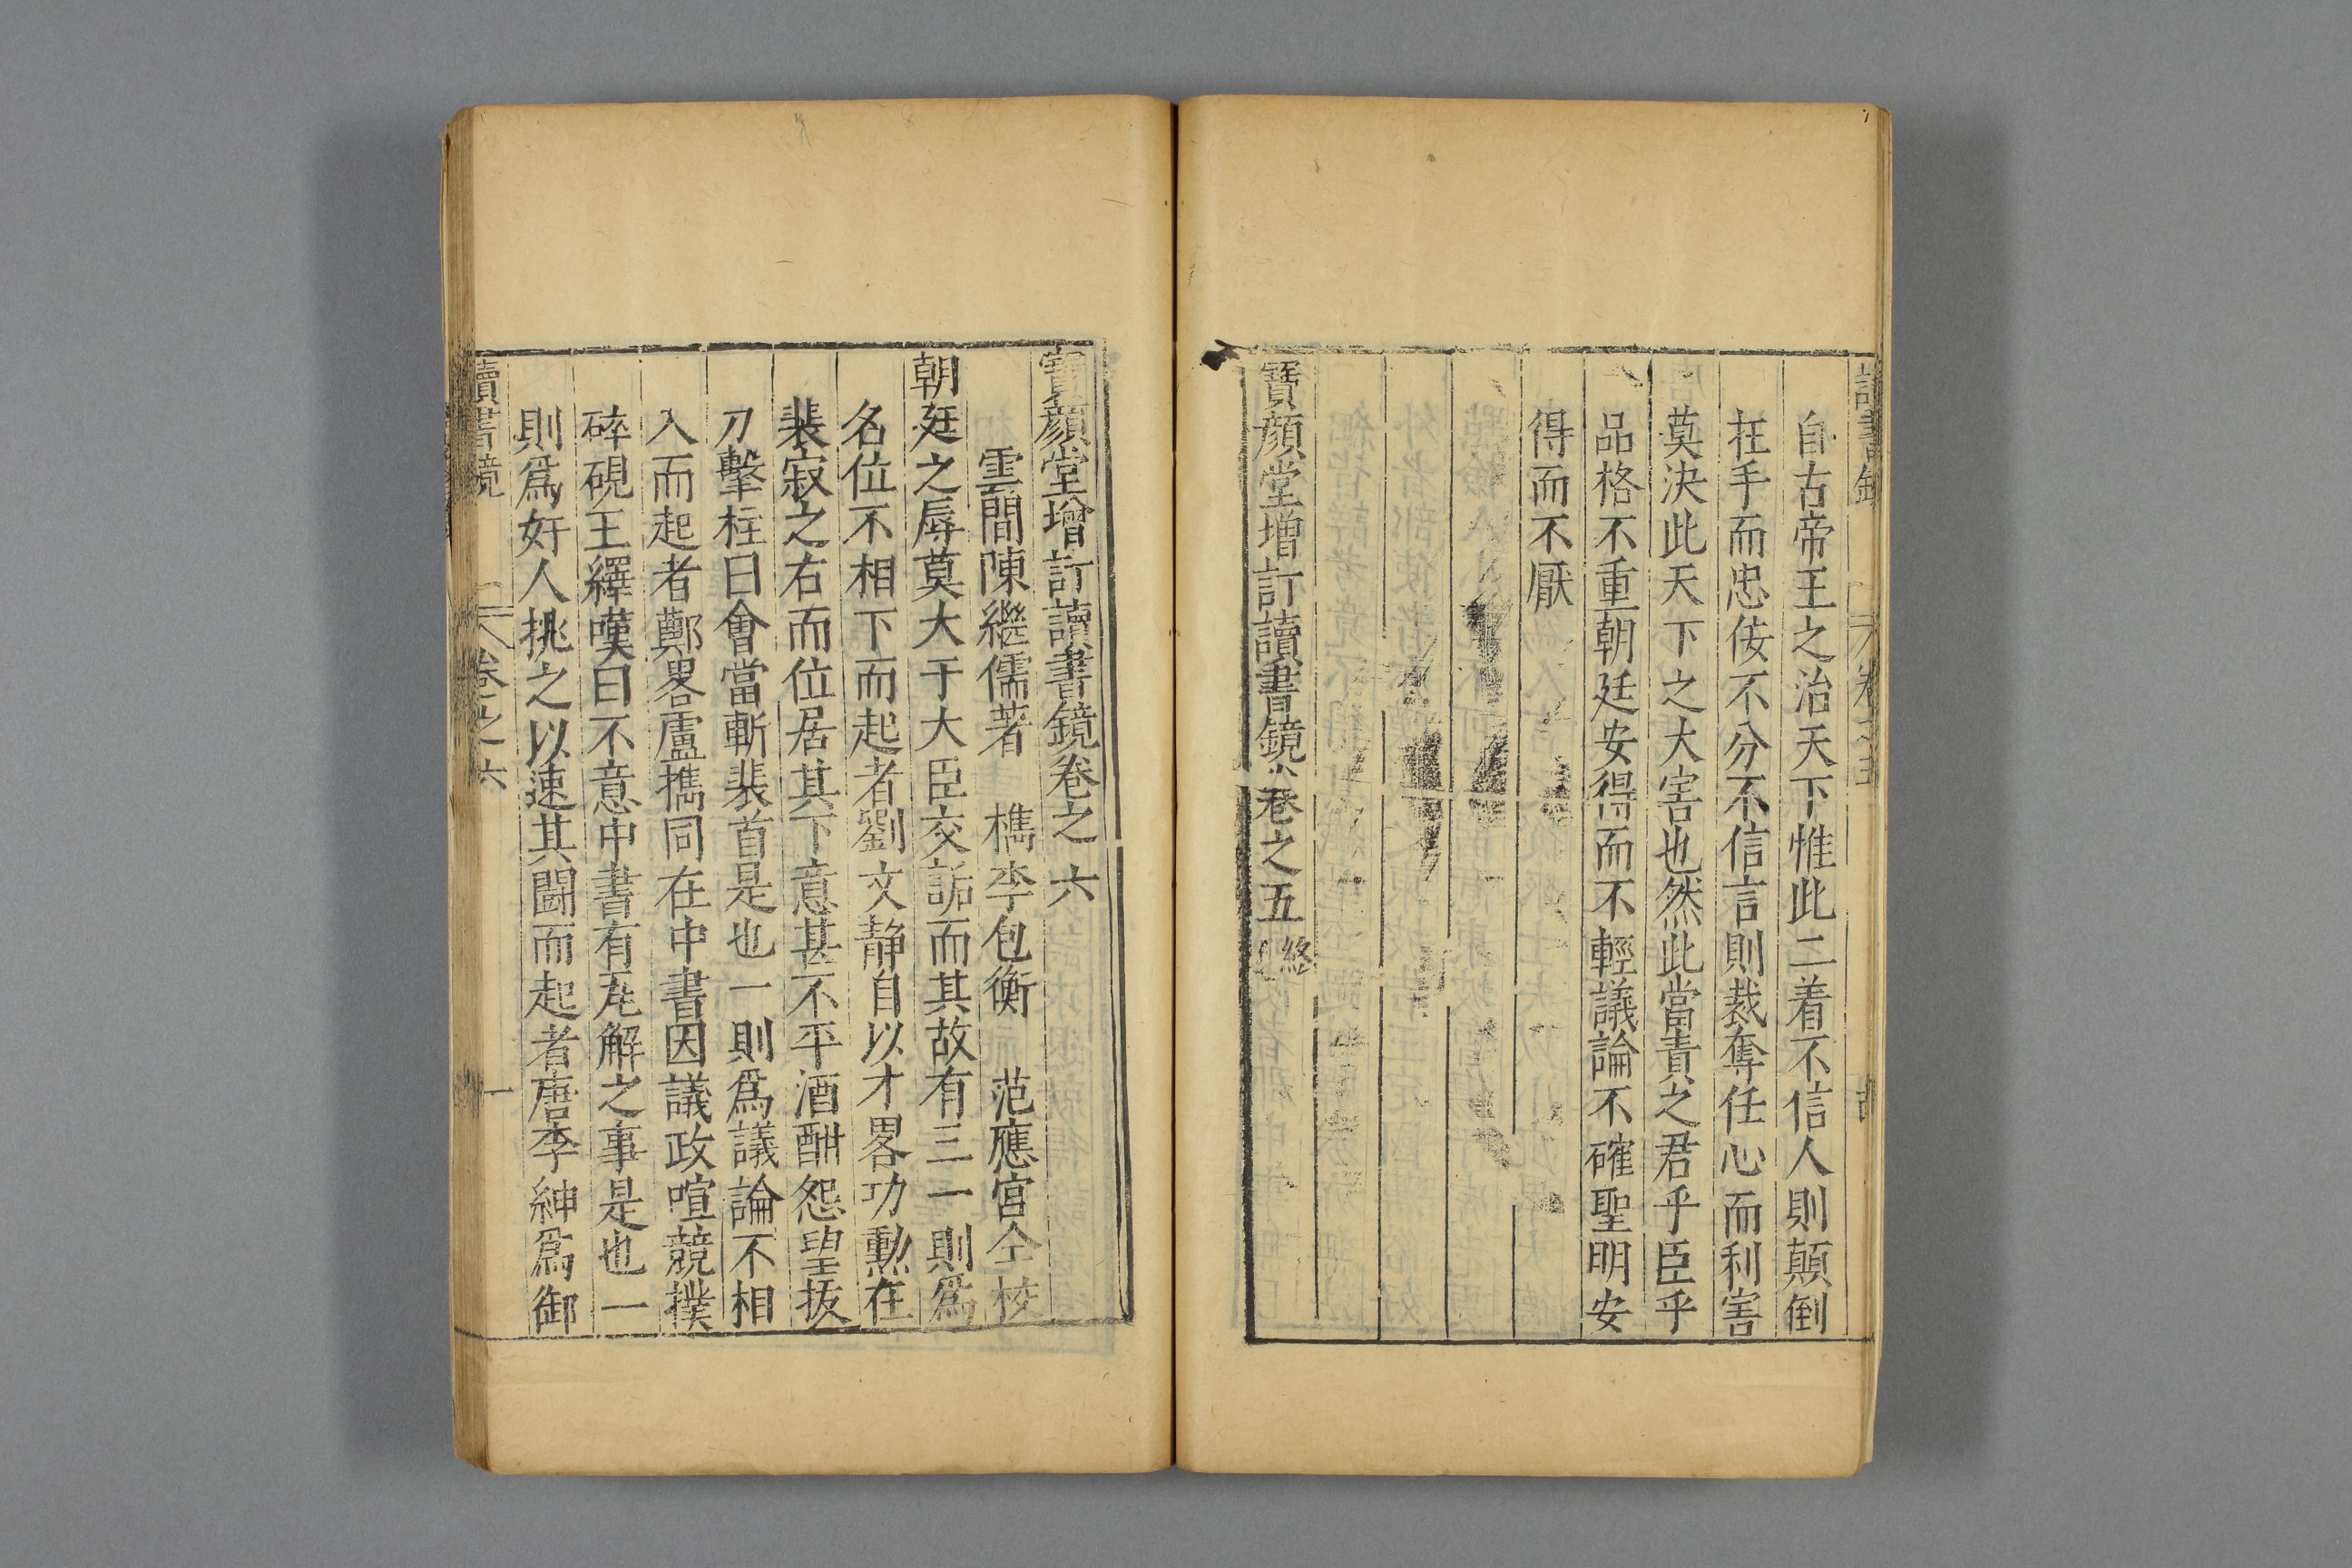 自古帝王之治天下惟此二着不信人則顛倒
在手而忠佞不分不信言則裁奪任心而利害
莫決此天下之大害也然此當責之君乎臣乎
品格不重朝廷安得而不輕議論不確聖明安
得而不厭
寶顏堂增訂讀書鏡卷之五終
寶顏堂增訂讀書鏡卷之六
雲間陳繼儒著 檇李包衡 范應宮仝校
朝廷之辱莫大于大臣交詬而其故有三一則爲
名位不相下而起者劉文靜自以才畧功勲在
裴寂之右而位居其下意甚不平酒酣怨望拔
刀擊柱曰會當斬裴首是也一則爲議論不相
入而起者鄭畧盧攜同在中書因議政喧競撲
碎硯王繹嘆曰不意中書有瓦解之事是也一
則爲奸人挑之以速其鬪而起者唐李紳爲御
讀書鏡 卷之六 一